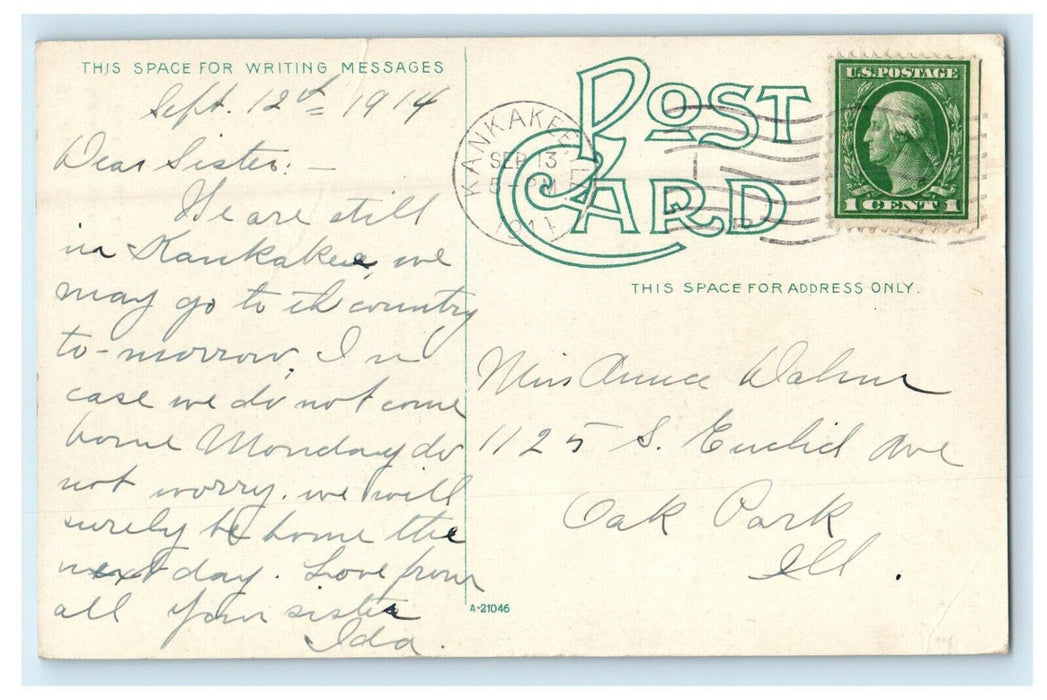 THIS SPACE FOR WRITING MESSAGES
Sept. 12th 1914
Dear Sister: —
We are still
in Kankakee, we
may go to th country
to-morrow. In
case we do not come
home Monday do
not worry. we will
surely be home the
next day. Love from
all your sister
Ida.
A-21046
POST CARD
KANKAKEE
SEP 13
1914
U.S. POSTAGE
1 CENT 1
THIS SPACE FOR ADDRESS ONLY.
Miss
1125 S. Euclid Ave
Oak Park
Ill.